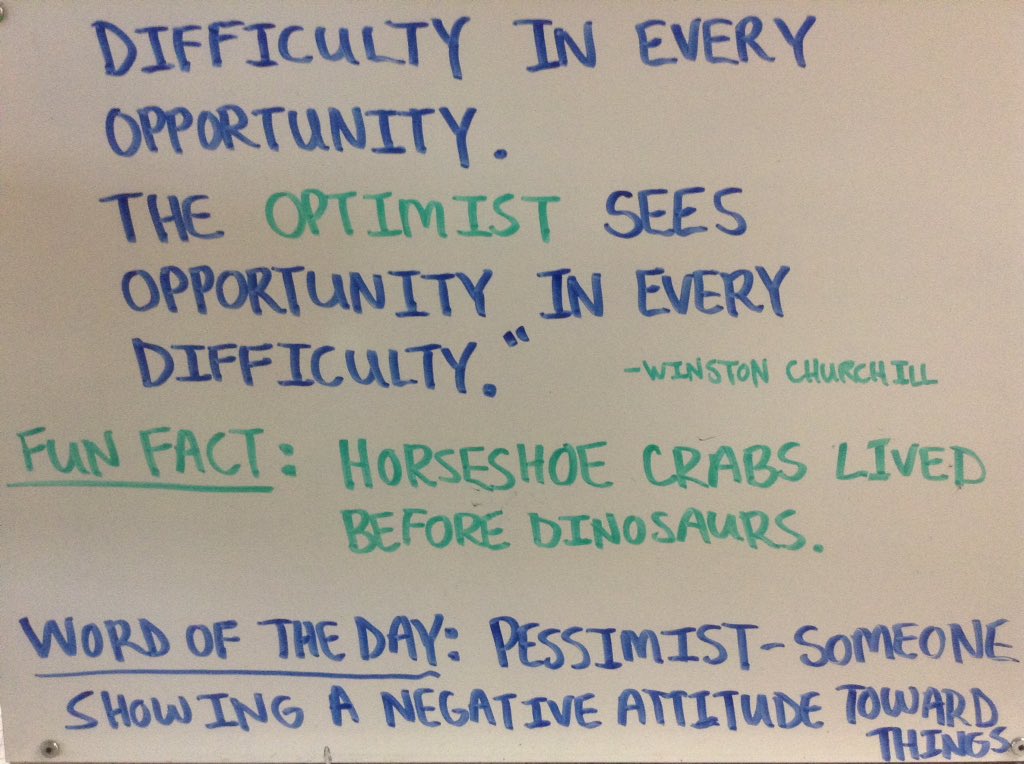 DIFFICULTY IN EVERY
OPPORTUNITY.
THE OPTIMIST SEES
OPPORTUNITY IN EVERY
DIFFICULTY."
-WINSTON CHURCHILL
FUN FACT: HORSESHOE CRABS LIVED
BEFORE DINOSAURS.
WORD OF THE DAY: PESSIMIST-SOMEONE
SHOWING A NEGATIVE ATTITUDE TOWARD
THINGS